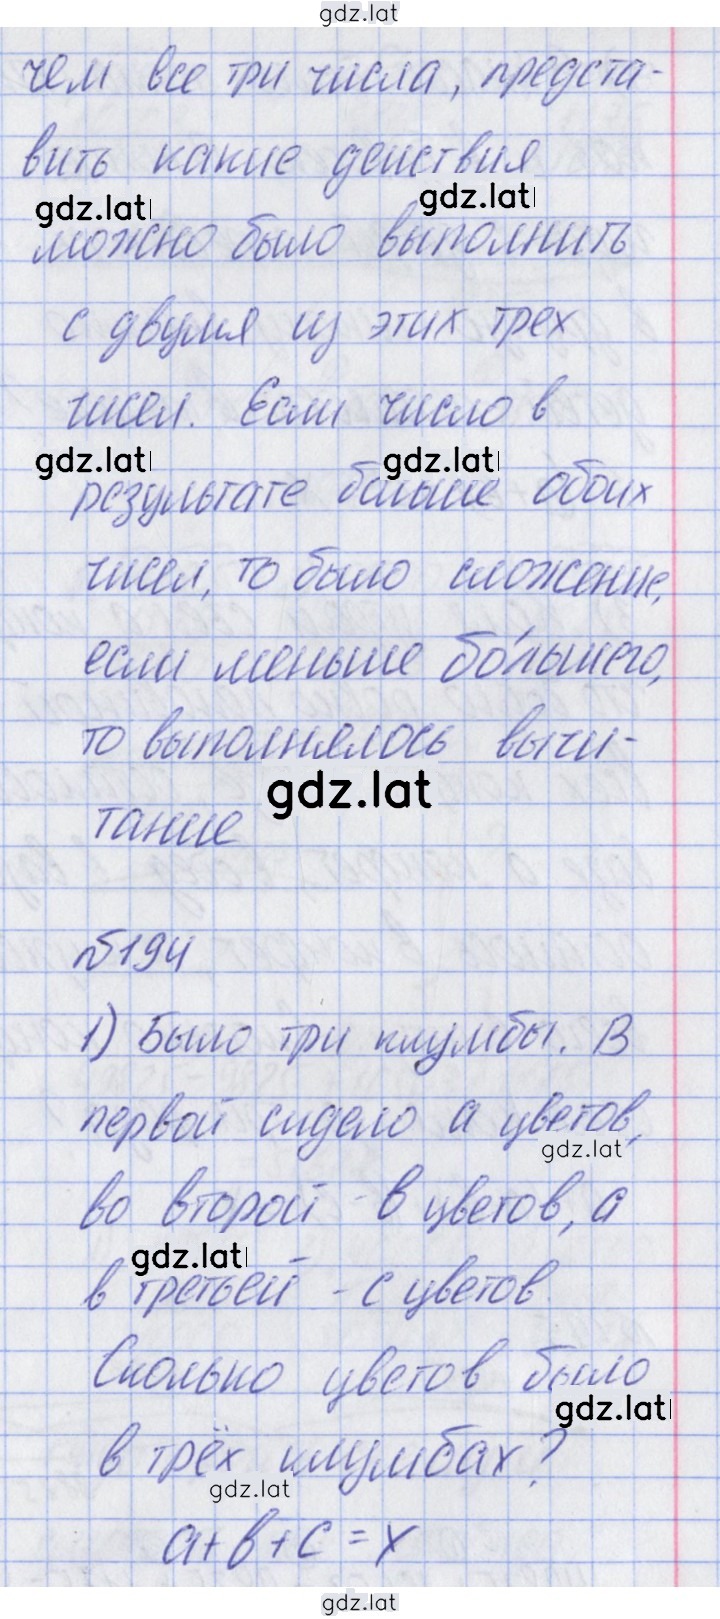 gdz.lat
чем все три числа, предста-
вить какие действия
gdz.lat gdz.lat
можно было выполнить
с двумя из этих трех
чисел. Если число в
gdz.lat gdz.lat
результате больше обоих
чисел, то было сложение,
если меньше бо́льшего,
то выполнялось вычи-
gdz.lat
тание
№194
1) Было три клумбы. В
первой сидело а цветов,
gdz.lat
во второй - в цветов, а
gdz.lat
в третьей - с цветов
Сколько цветов было
gdz.lat
в трёх клумбах?
gdz.lat
а+в+с=х
gdz.lat